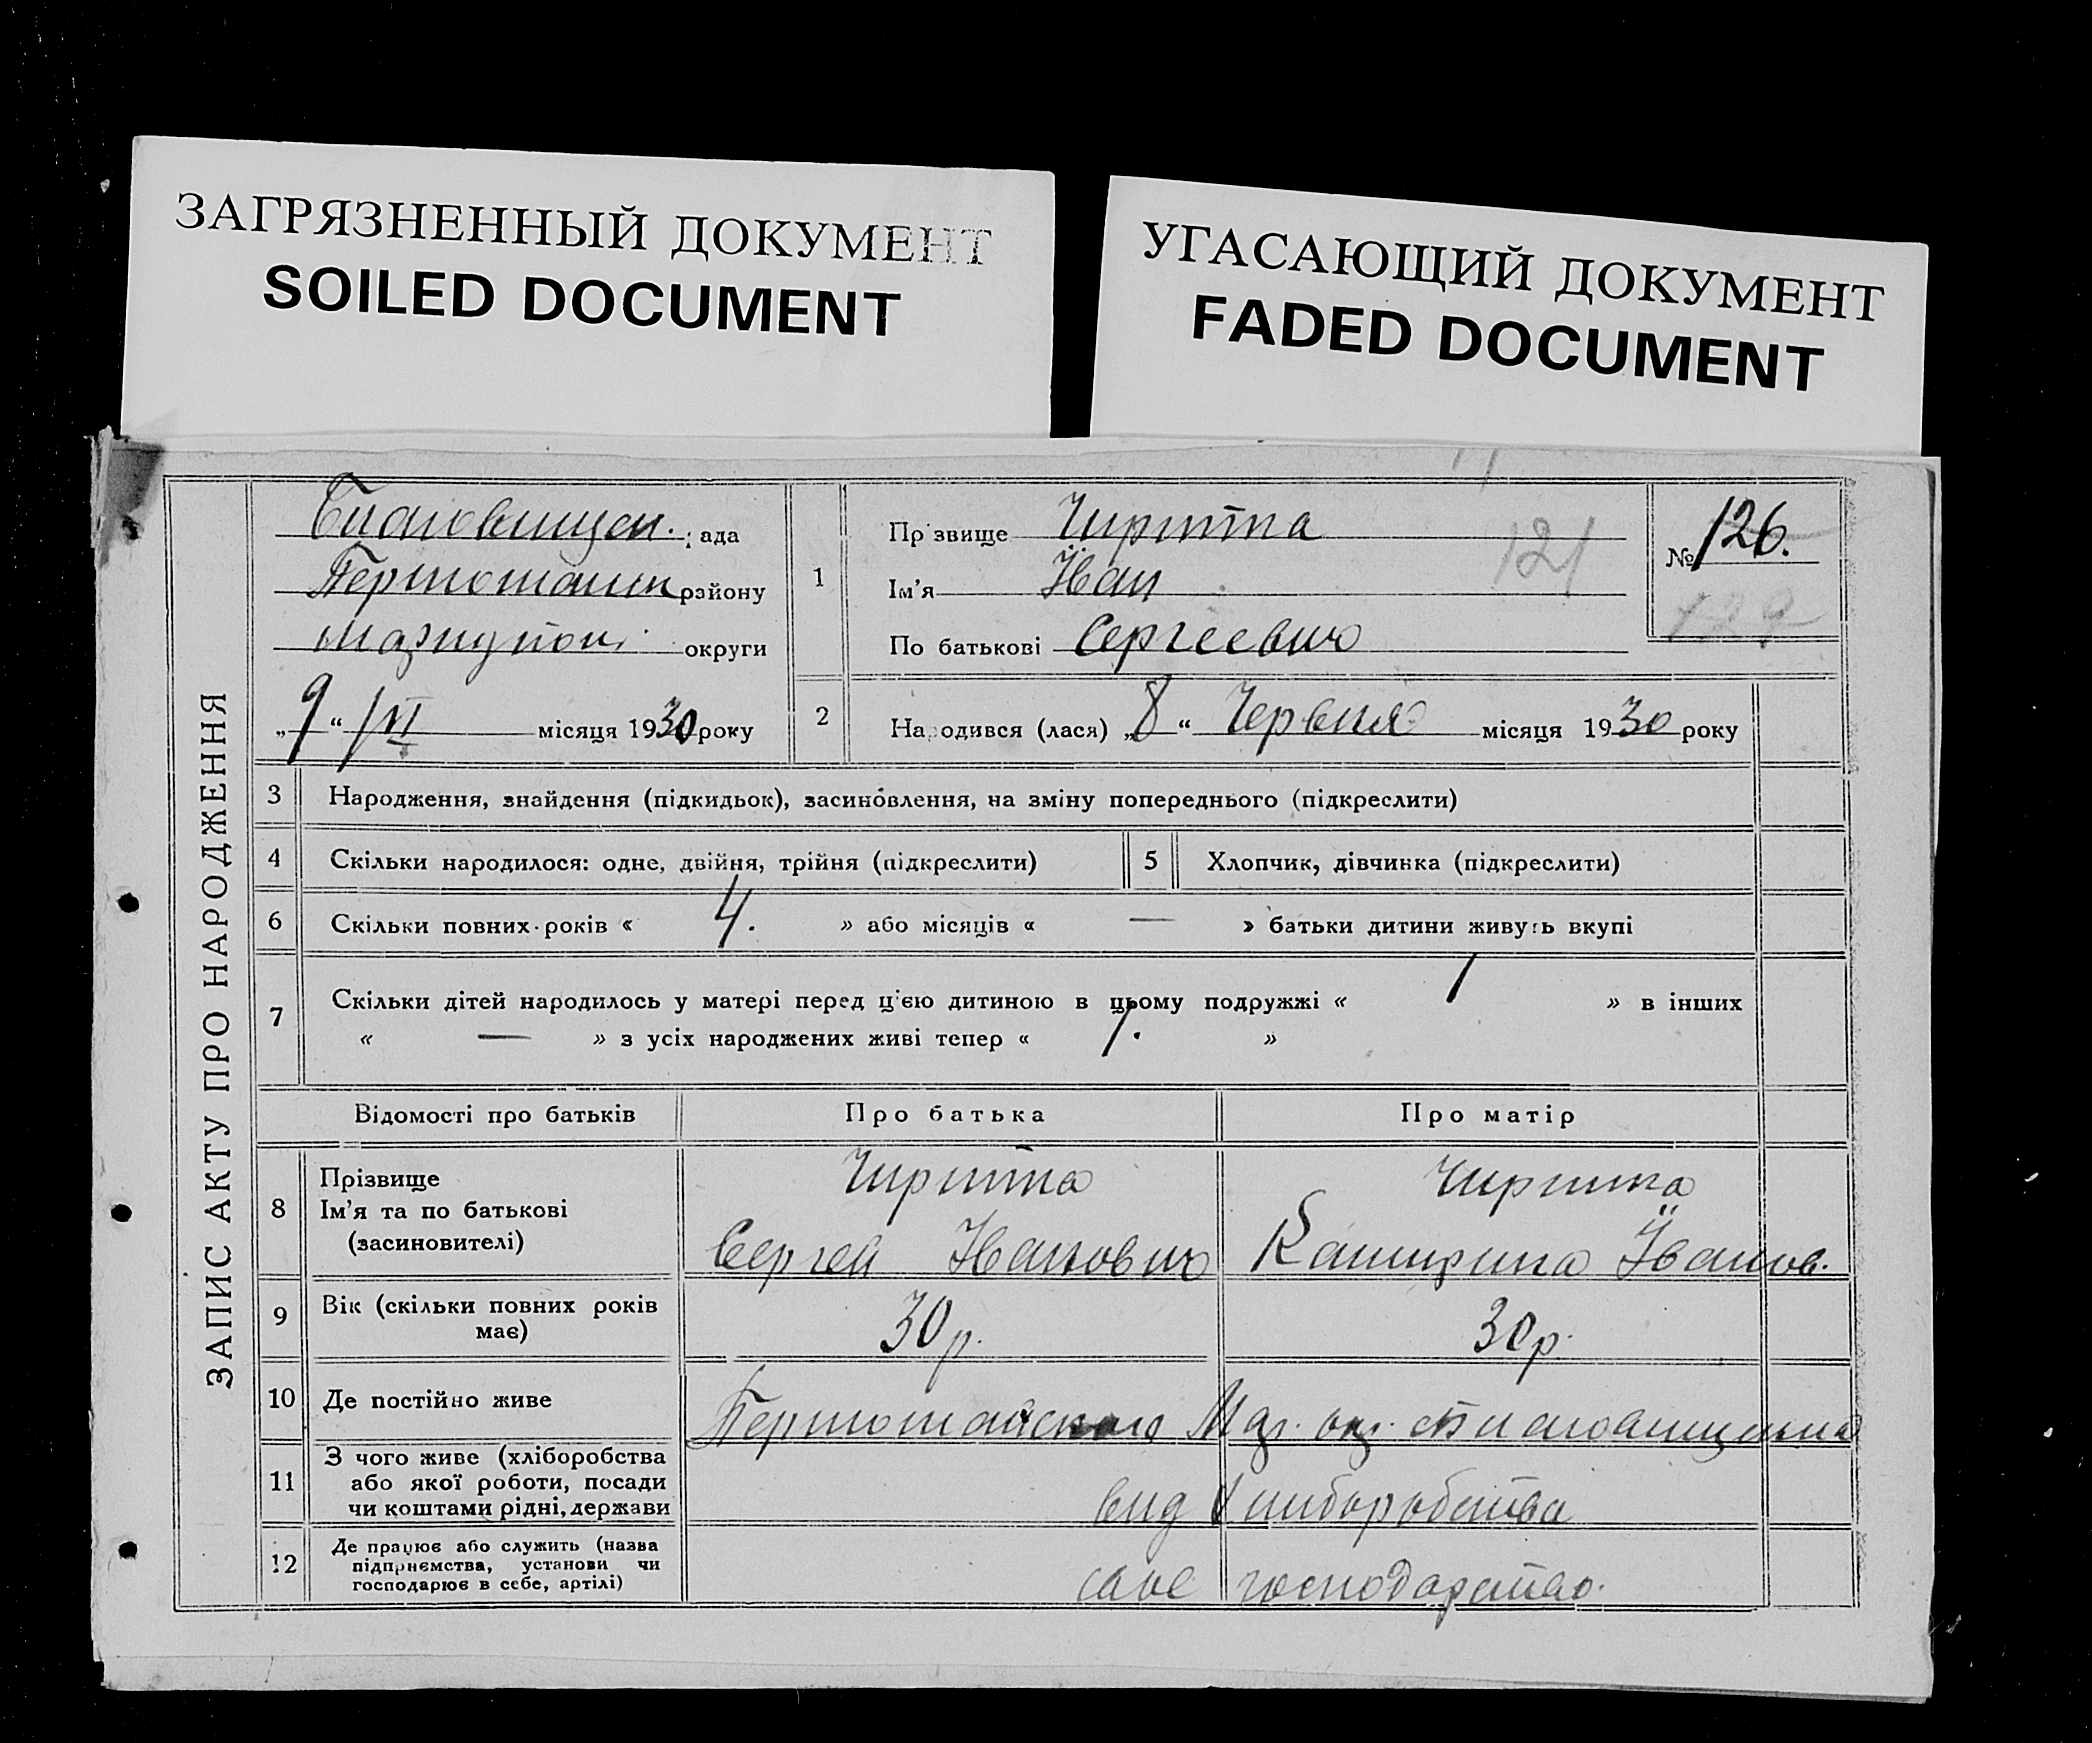 ЗАГРЯЗНЕННЫЙ ДОКУМЕНТ
SOILED DOCUMENT
УГАСАЮЩИЙ ДОКУМЕНТ
FADED DOCUMENT
ЗАПИС АКТУ ПРО НАРОДЖЕННЯ
ада
району
округи
„9“ /VI місяця 1930 року
1
Прізвище
Ім'я Иван
По батькові Сергеевич
№ 126.
121
2 Народився (лася) „8“ Червня місяця 1930 року
3 Народження, знайдення (підкидьок), засиновлення, на зміну попереднього (підкреслити)
4 Скільки народилося: одне, двійня, трійня (підкреслити)
5 Хлопчик, дівчинка (підкреслити)
6 Скільки повних років « 4. » або місяців « — » батьки дитини живуть вкупі
7 Скільки дітей народилось у матері перед цією дитиною в цьому подружжі « 1 » в інших
« — » з усіх народжених живі тепер « 1. »
Відомості про батьків Про батька Про матір
8 Прізвище
Ім'я та по батькові
(засиновителі)
Сергей Иванович
Іванов.
9 Вік (скільки повних років
має)
30 р. 30 р.
10 Де постійно живе
11 З чого живе (хліборобства
або якої роботи, посади
чи коштами рідні, держави
хліборобства
12 Де працює або служить (назва
підприємства, установи чи
господарює в себе, артілі)
своє господарство.